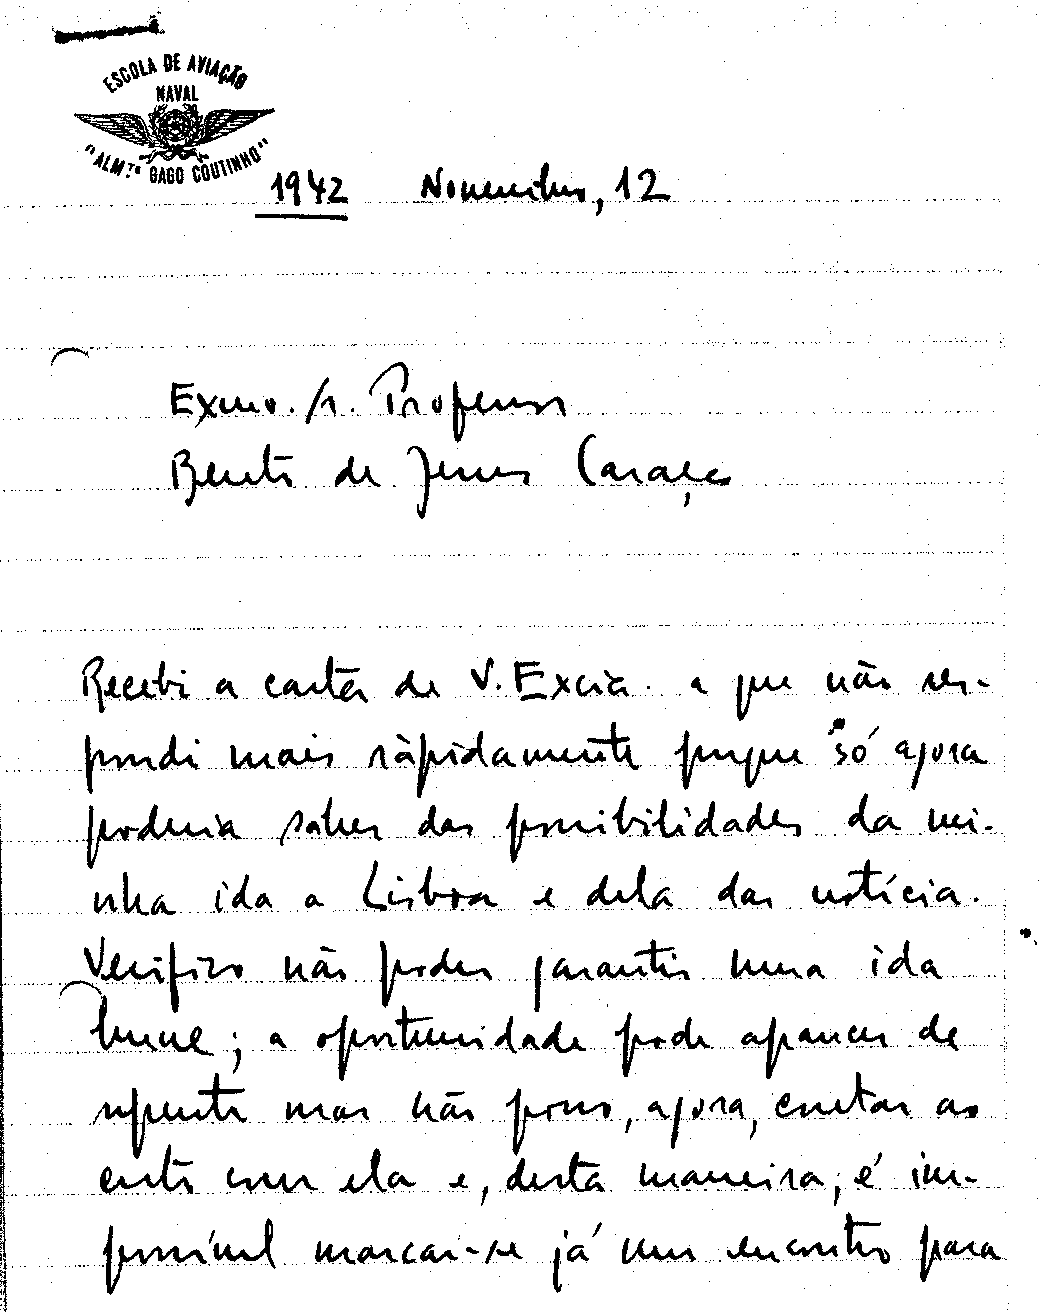 ESCOLA DE AVIAÇÃO
NAVAL
"ALM.TE GAGO COUTINHO"
1942 Novembro, 12
Exmo. Sr. Professor
Bento de Jesus Caraça
Recebi a carta de V. Excia. a que não res-
pondi mais ràpidamente porque só agora
poderia saber das possibilidades da mi-
nha ida a Lisboa e dela dar notícia.
Verifico não poder garantir uma ida
breve; a oportunidade pode aparecer de
repente mas não posso, agora, contar ao
certo com ela e, desta maneira, é im-
possível marcar-se já um encontro para